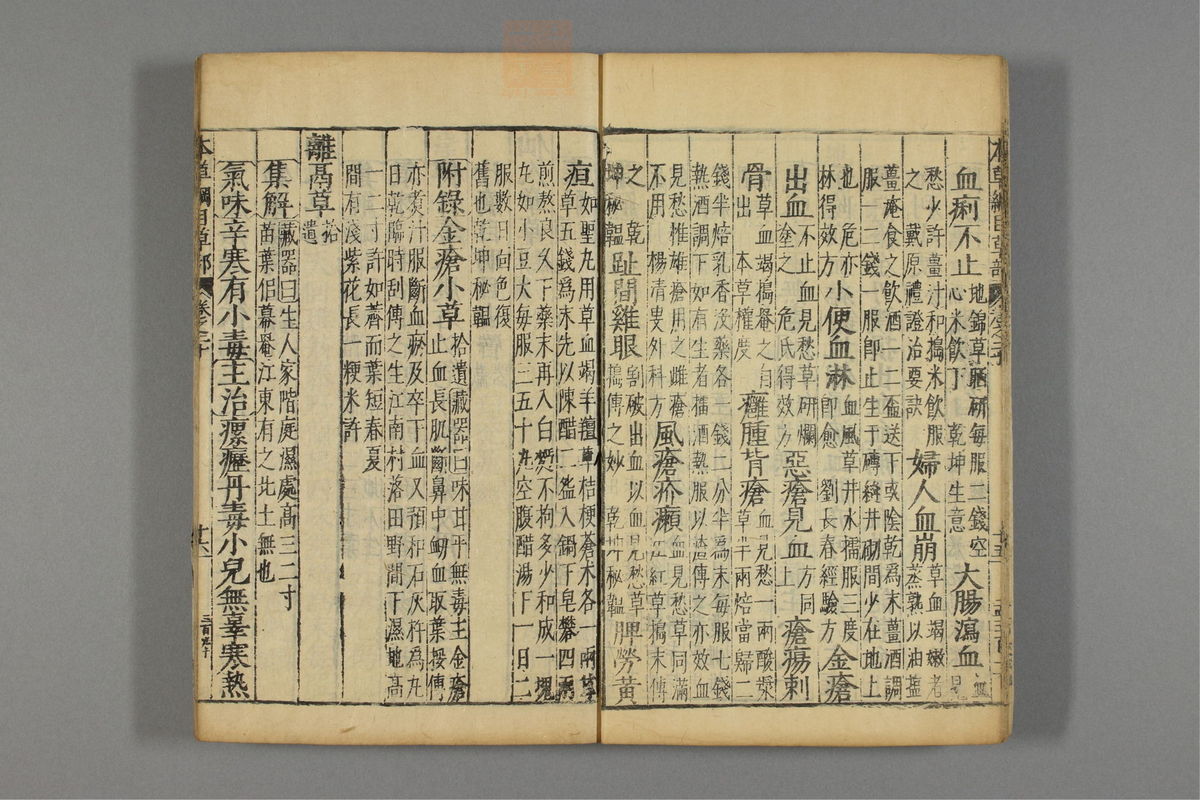 本草綱目草部 卷之二十
血痢不止 地錦草晒研每服二錢空心米飲下 乾坤生意 大腸瀉血 血見
愁少許薑汁和搗米飲服之 戴原禮證治要訣 婦人血崩 草血竭嫩者蒸熟以油鹽
薑淹食之飲酒一二盃送下或陰乾爲末薑酒調服一二錢一服即止生于磚縫井砌間少在地上
也 危亦林得效方 小便血淋 血風草井水擂服三度即愈 劉長春經驗方 金瘡
出血 不止血見愁草研爛塗之 危氏得效方 惡瘡見血 方同上 瘡瘍刺
骨 草血竭搗罨之自出 本草權度 癰腫背瘡 血見愁一兩酸漿草半兩焙當歸二
錢半焙乳香沒藥各一錢二分半爲末每服七錢熱酒調下如有生者擂酒熱服以渣傅之亦效血
見愁惟雄瘡用之雌瘡不用 楊清叟外科方 風瘡疥癬 血見愁草同滿江紅草搗末傅
之 乾坤秘韞 趾間雞眼 割破出血以血見愁草搗傅之妙 乾坤秘韞 脾勞黃
疸 如聖丸用草血竭羊羶草桔梗蒼朮各一兩甘草五錢爲末先以陳醋二盌入鍋下皂礬四兩
煎熬良久下藥末再入白麪不拘多少和成一塊丸如小豆大每服三五十丸空腹醋湯下一日二
服數日面色復舊也 乾坤秘韞
附錄金瘡小草 拾遺藏器曰味甘平無毒主金瘡止血長肌斷鼻中衄血取葉挼傅
亦煑汁服斷血瘀及卒下血又預和石灰杵爲丸日乾臨時刮傅之生江南村落田野間下濕地高
一二寸許如薺而葉短春夏間有淺紫花長一粳米許
離鬲草 拾遺
集解 藏器曰生人家階庭濕處高三二寸苗葉似幕罨江東有之北土無也
氣味辛寒有小毒主治瘰癧丹毒小兒無辜寒熱
本草綱目草部 卷之二十